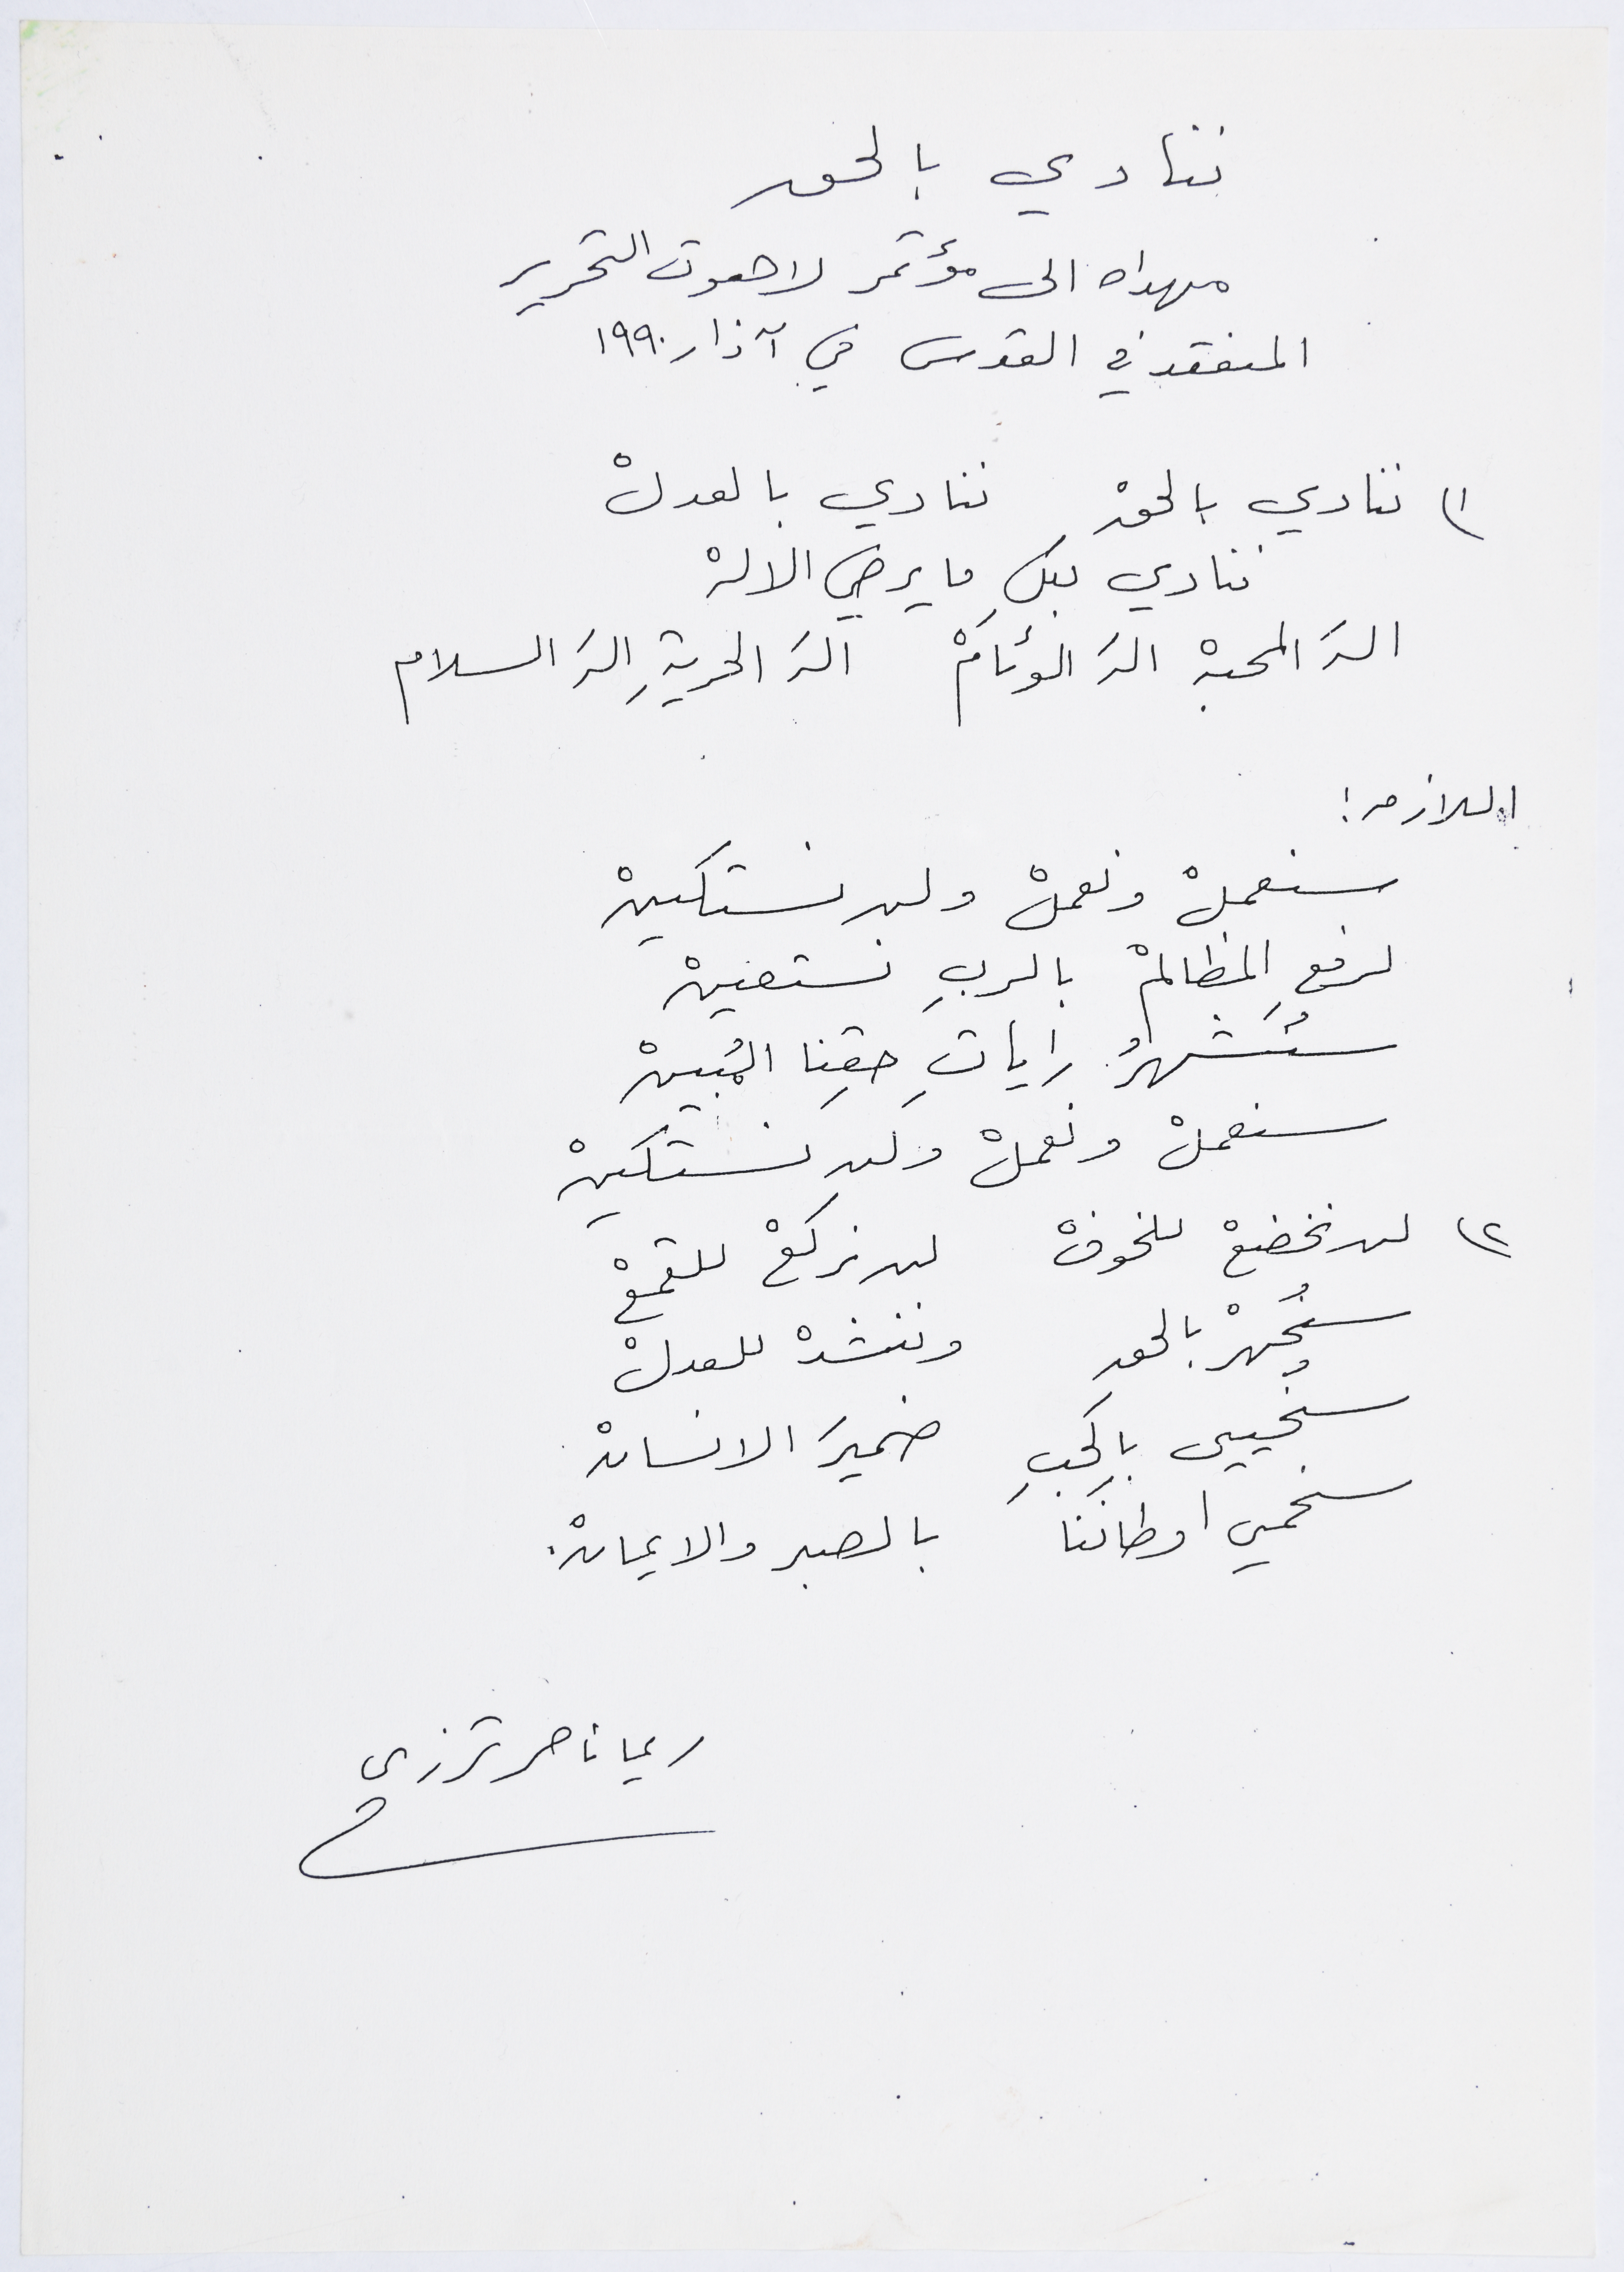 ننادي بالحق
مهداه الى مؤتمر لاهوت التحرير
المنعقد في القدس في آذار ١٩٩٠
١) ننادي بالحقْ ننادي بالعدلْ
ننادي بكلِ ما يرضي الالهْ
الهَ المحبهْ الهَ الوئامْ الهَ الحريةِ الهَ السلام
اللازمه:
سنعملْ ونعملْ ولن نستكينْ
لرفعِ المظالمْ بالربِ نستعينْ
سنُشهرُ راياتِ حقِنا المُبينْ
سنعملْ ونعملْ ولن نستكينْ
٢) لن نخضعْ للخوفْ لن نركعْ للقمعْ
سنُجهرْ بالحق وننشدْ للعدلْ
سنُحيي بالحُبِ ضميرَ الانسانْ
سنحمي اوطانَنا بالصبر والايمانْ.
ريما ناصر ترزي